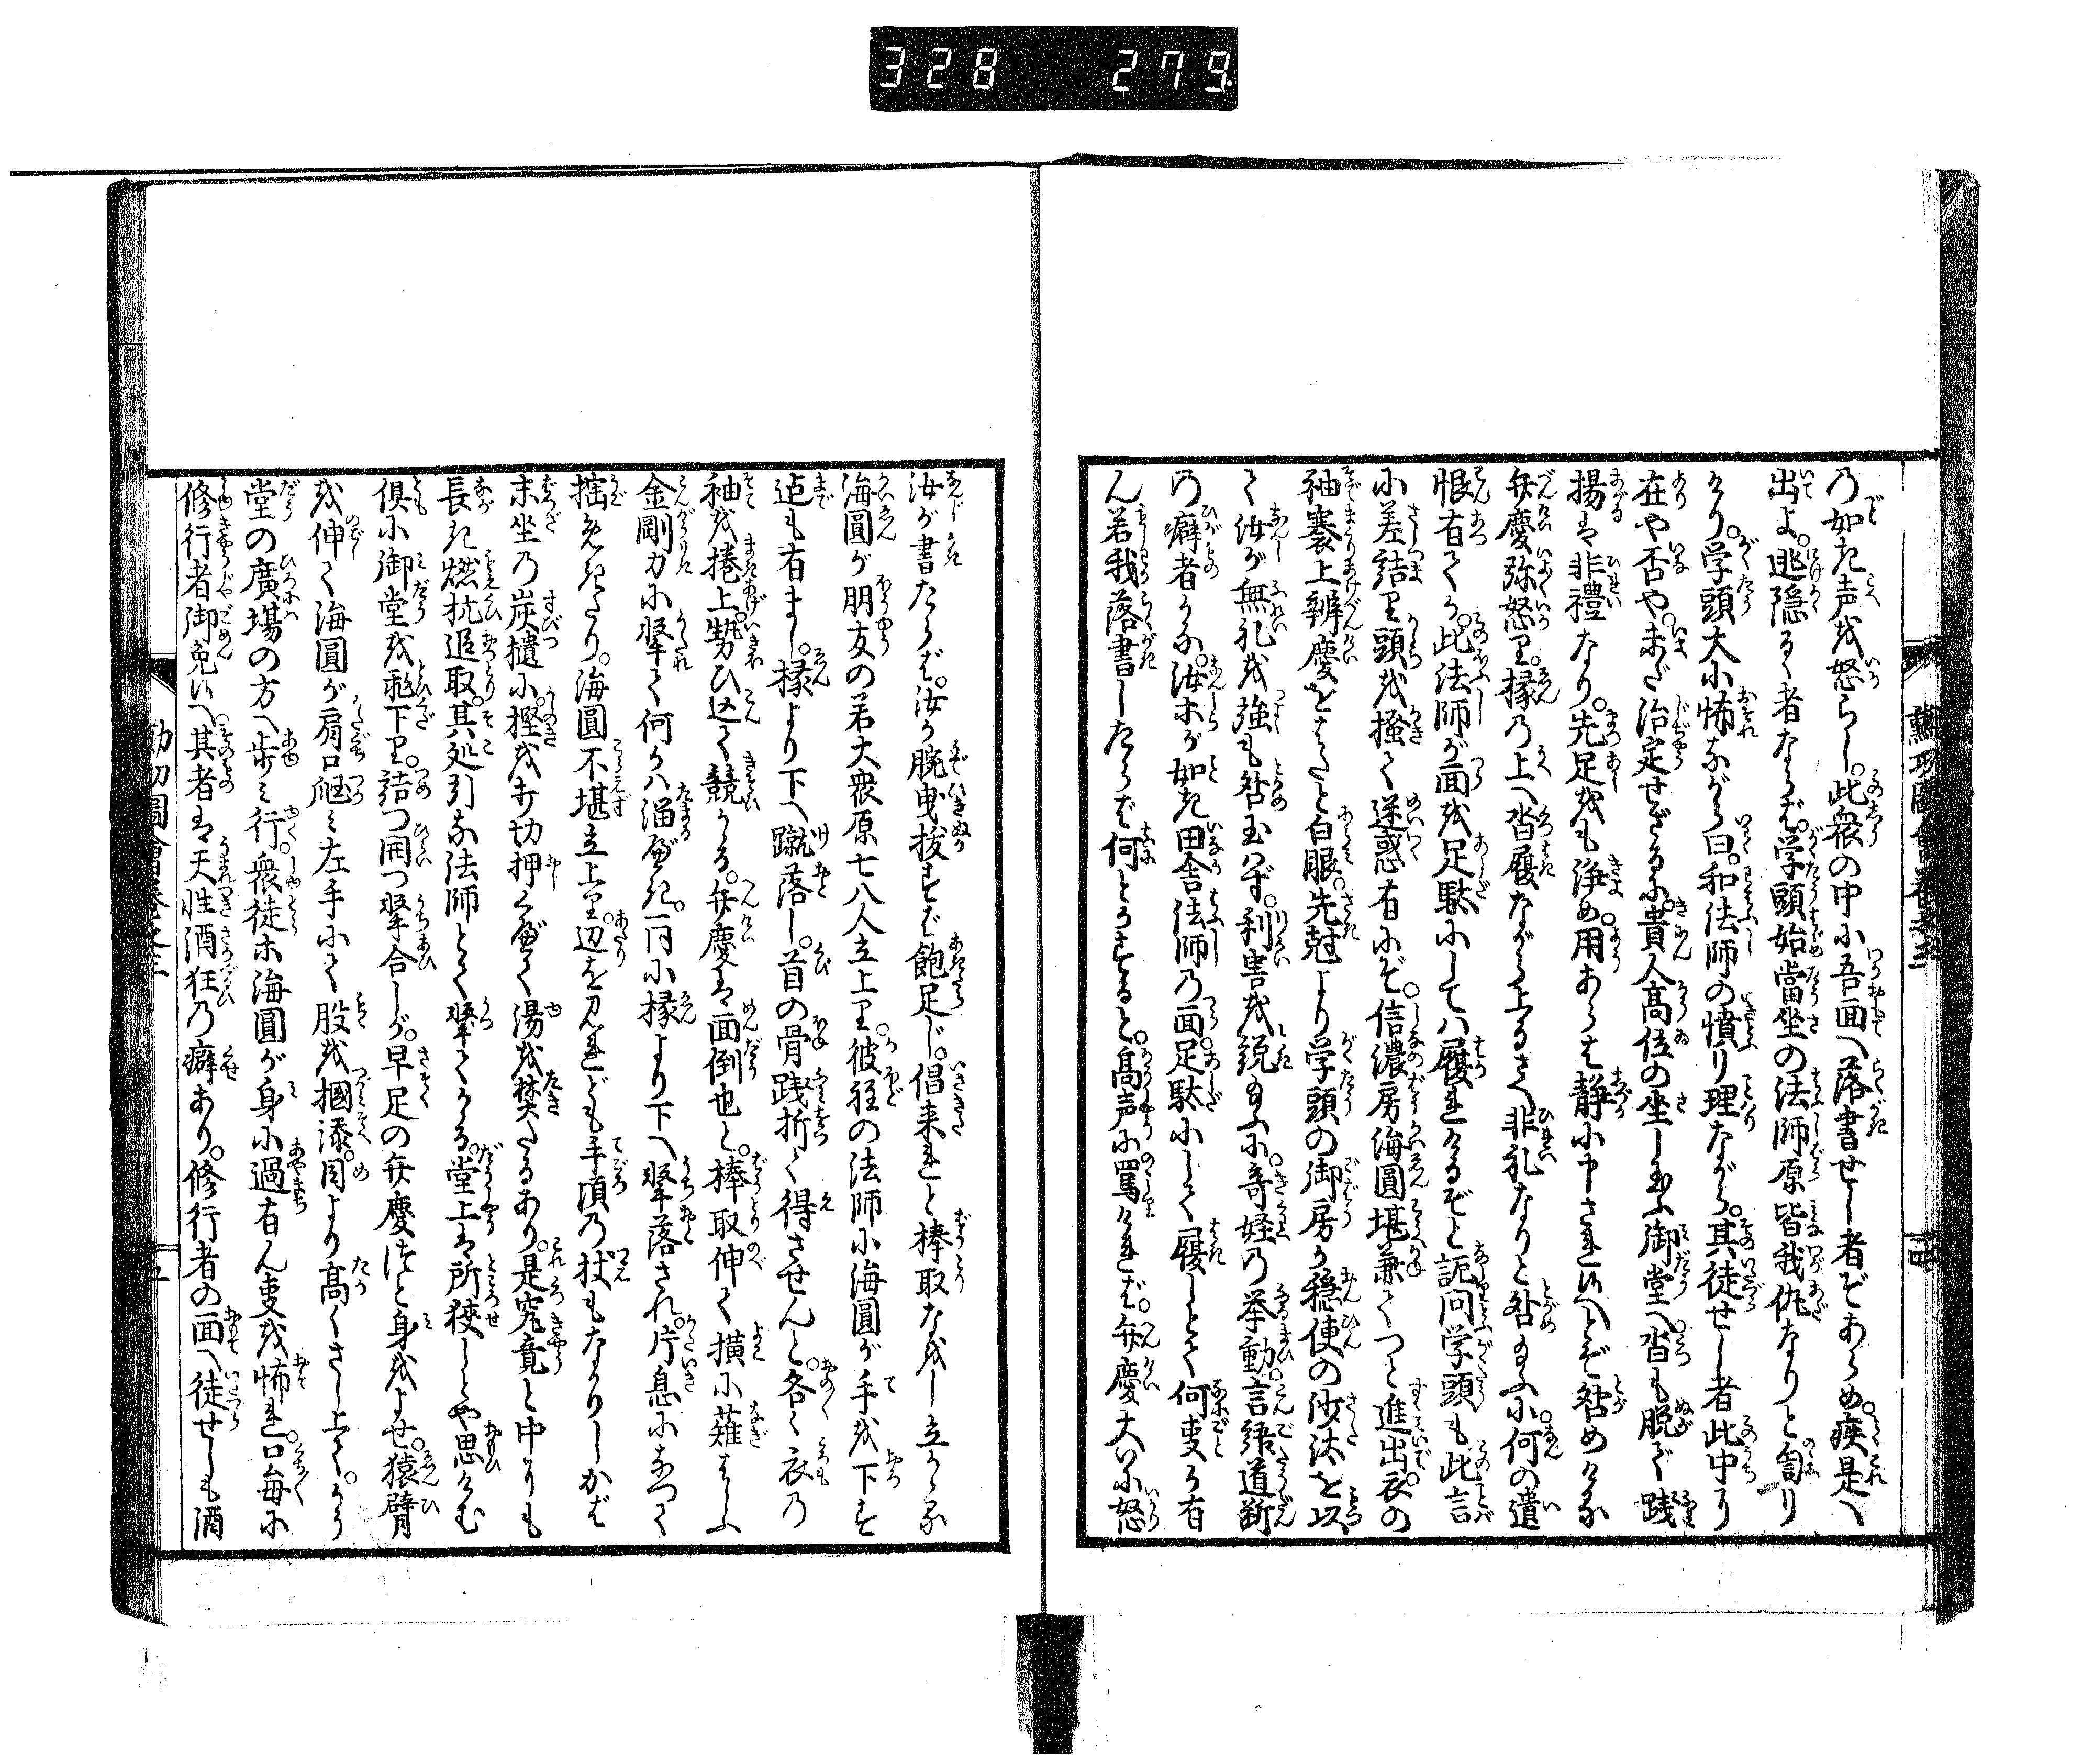 328 279
乃如き声を怒らし。此衆の中に吾面へ落書せし者ぞあらめ。疾是へ
出よ。逃隠るゝ者ならば。学頭始當坐の法師原皆我仇なりと訇り
けり。学頭大に怖ながら曰。和法師の憤り理ながら。其徒せし者此中に
在や否や。未だ治定せざるに。貴人高位の坐し玉ふ御堂へ沓も脱で踐
揚るは非禮なり。先足をも浄め。用あらは静に申され候へとぞ咎めける
弁慶弥怒り。縁の上へ沓履ながら上るさへ非礼なりと咎玉ふに。何の遺
恨有てか。此法師が面を足駄にしては履れけるぞと詬問学頭も此言
に差詰り頭を掻て迷惑有にぞ。信濃房海圓堪兼てつと進出。衣の
袖褰上辨慶をはたと白眼。先尅より学頭の御房が穏便の沙汰を以
て汝が無礼を強も咎玉はず。利害を説玉ふに。奇怪の挙動。言語道断
乃癖者かな。汝等が如き田舎法師の面。足駄にして履しとて何事か有
ん若我落書したらば何とかすると。高声に罵ければ。弁慶大いに怒
勲功圖會巻之三
汝が書たらば。汝が腕曳抜ずば飽足じ。倡来れと棒取なをし立かゝる
海圓が朋友の若大衆原七八人立上り。彼程の法師に海圓が手を下す
迠も有まし。縁より下へ蹴落し。首の骨践折て得させんと。各々衣の
袖を捲上。勢ひ込て競かゝる。弁慶は面倒也と。棒取伸て横に薙はらふ
金剛力に撃れて何かは溜るべき。一同に縁より下へ撃落され。片息になつて
揺めきたり。海圓不堪立上り。辺を見れども手頃の杖もなかりしかば
末坐の炭櫃に。樫を打切押くべて湯を焚たるあり。是究竟と中にも
長き燃杭追取。其処引な法師とて撃てかゝる。堂上は所狭しとや思けむ
倶に御堂を飛下り。詰つ開つ撃合しが。早足の弁慶つと身をよせ。猿臂
を伸て海圓が肩口爴ミ左手にて股を掴添。目より高くさし上て。かう
堂の廣場の方へ歩ミ行。衆徒等海圓が身に過有ん事を怖れ。口毎に
修行者御免候へ。其者は天性酒狂の癖あり。修行者の面へ徒せしも酒
勲功圖會巻之三
五